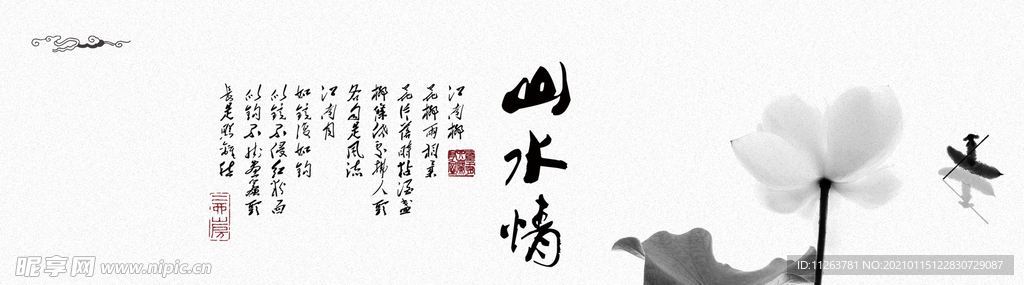 山水情
江南柳
花柳兩相柔
花片落時黏酒盞
柳條低處拂人頭
各自是風流
江南月
如鏡復如鉤
似鏡不侵紅粉面
似鉤不掛畫簾頭
長是照離愁
昵享网 www.nipic.cn
ID:11263781 NO:20210115122830729087